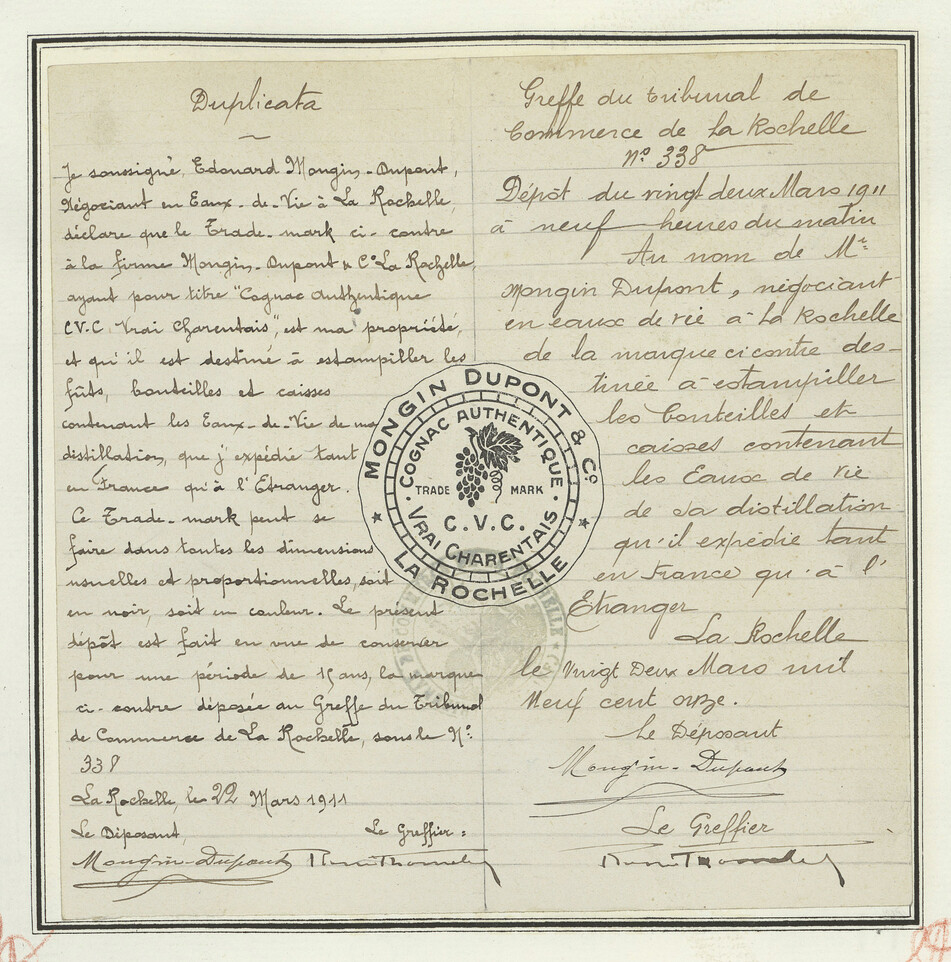 Duplicata
Je soussigné, Edouard Mongin-Dupont,
Négociant en Eaux-de-Vie à La Rochelle,
déclare que le Trade-mark ci-contre
à la firme Mongin-Dupont & Cº La Rochelle,
ayant pour titre "Cognac Authentique
C.V.C. Vrai Charentais", est ma propriété,
et qu'il est destiné à estampiller les
fûts, bouteilles et caisses
contenant les Eaux-de-Vie de ma
distillation, que j'expédie tant
en France qu'à l'Etranger.
Ce Trade-mark peut se
faire dans toutes les dimensions
usuelles et proportionnelles, soit
en noir, soit en couleur. Le présent
dépôt est fait en vue de conserver
pour une période de 15 ans, la marque
ci-contre déposée au Greffe du Tribunal
de Commerce de La Rochelle, sous le Nº
338
La Rochelle, le 22 Mars 1911
Le Déposant, Le Greffier :
Mongin-Dupont
Greffe du tribunal de
Commerce de La Rochelle
Nº 338
Dépôt du vingt deux Mars 1911
à neuf heures du matin
Au nom de Mr
Mongin Dupont, négociant
en eaux de vie à La Rochelle
de la marque ci contre des-
tinée à estampiller
les bouteilles et
caisses contenant
les Eaux de vie
de sa distillation
qu'il expédie tant
en France qu'à l'
Etranger
La Rochelle
le Vingt Deux Mars mil
Neuf cent onze.
Le Déposant
Mongin-Dupont
Le Greffier
MONGIN DUPONT & Cº
COGNAC AUTHENTIQUE
TRADE MARK
C.V.C.
VRAI CHARENTAIS
LA ROCHELLE